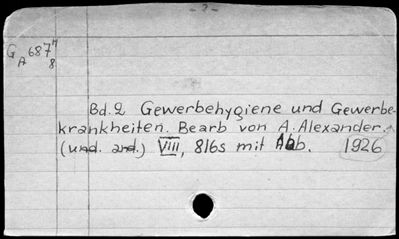 - 2 -
G A 687 4/8
Bd. 2 Gewerbehygiene und Gewerbe-
krankheiten. Bearb von A. Alexander.
(und. and.) VIII, 816s mit Abb. 1926